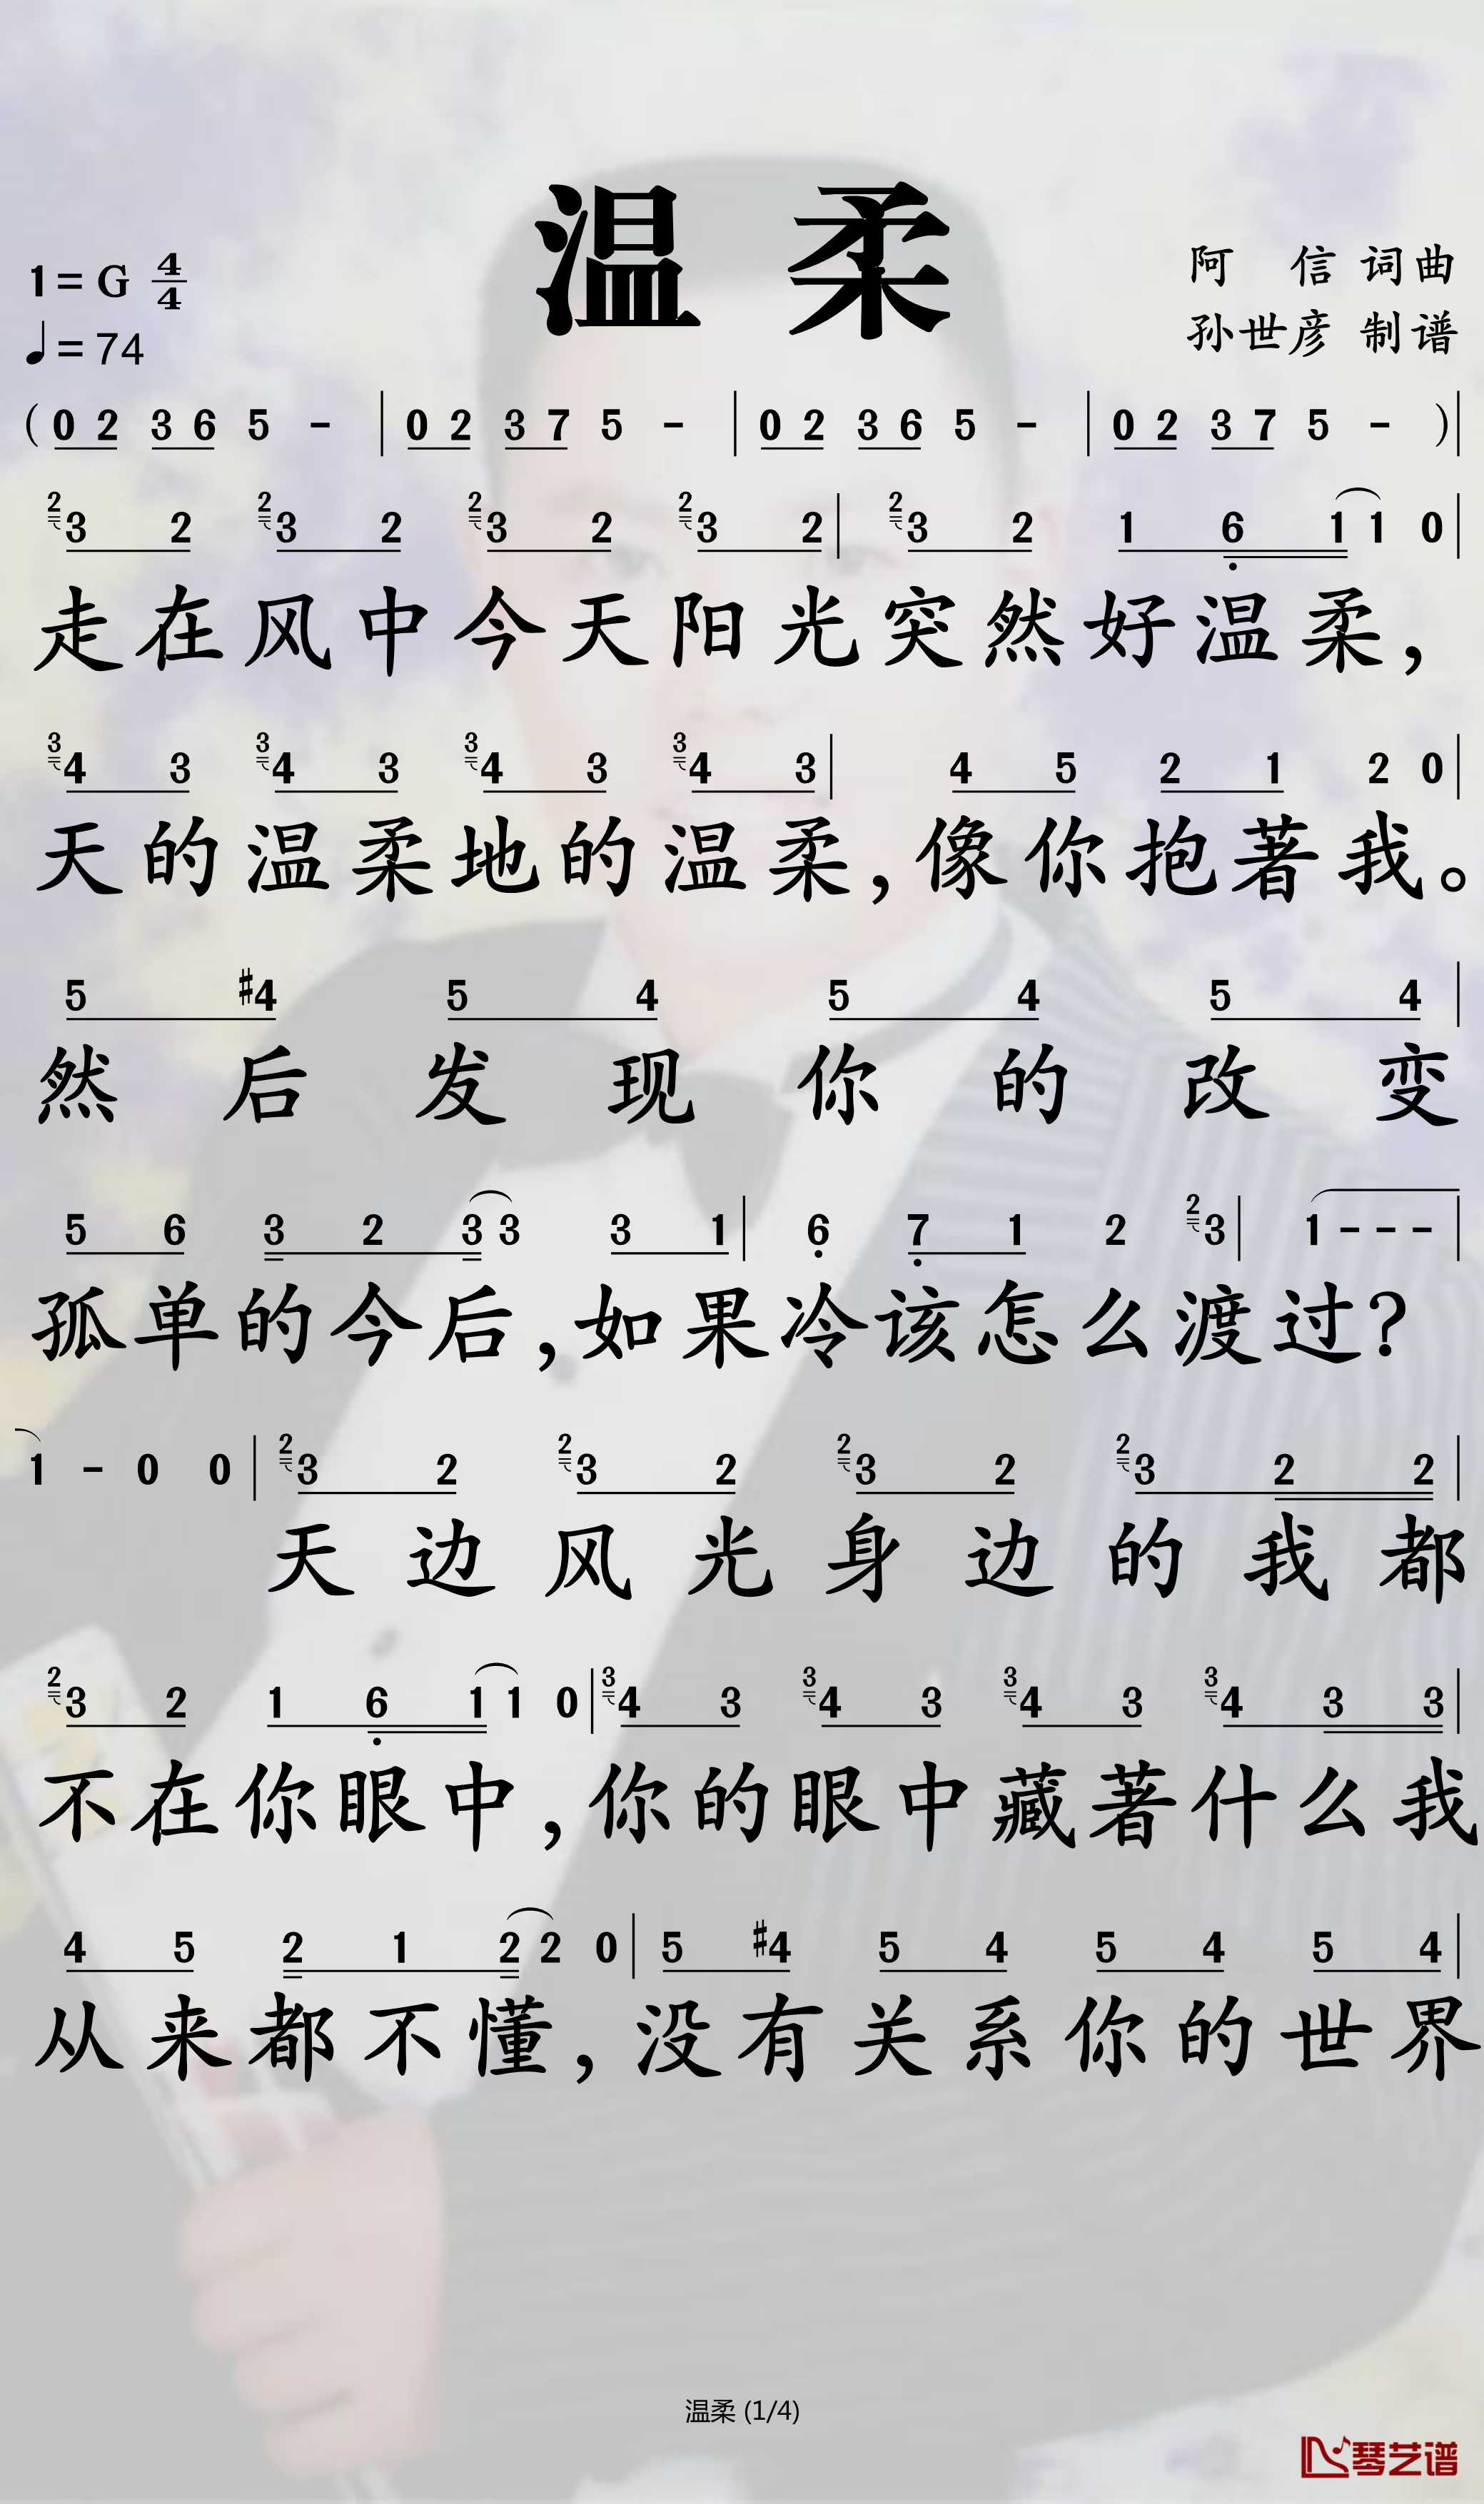 温 柔
1=G 4/4
♩=74
阿 信 词曲
孙世彦 制谱
(0 2 3 6 5 - | 0 2 3 7 5 - | 0 2 3 6 5 - | 0 2 3 7 5 - )|
2 3 2 2 3 2 2 3 2 2 3 2 | 2 3 2 1 6 1 1 0 |
走在风中今天阳光突然好温柔，
3 4 3 3 4 3 3 4 3 3 4 3 | 4 5 2 1 2 0 |
天的温柔地的温柔，像你抱著我。
5 #4 5 4 5 4 5 4 |
然后发现你的改变
5 6 3 2 3 3 3 1 | 6 7 1 2 2 3 | 1 - - - |
孤单的今后，如果冷该怎么渡过？
1 - 0 0 | 2 3 2 2 3 2 2 3 2 2 3 2 2 |
天边风光身边的我都
2 3 2 1 6 1 1 0 | 3 4 3 3 4 3 3 4 3 3 4 3 3 |
不在你眼中，你的眼中藏著什么我
4 5 2 1 2 2 0 | 5 #4 5 4 5 4 5 4 |
从来都不懂，没有关系你的世界
温柔 (1/4)
琴艺谱